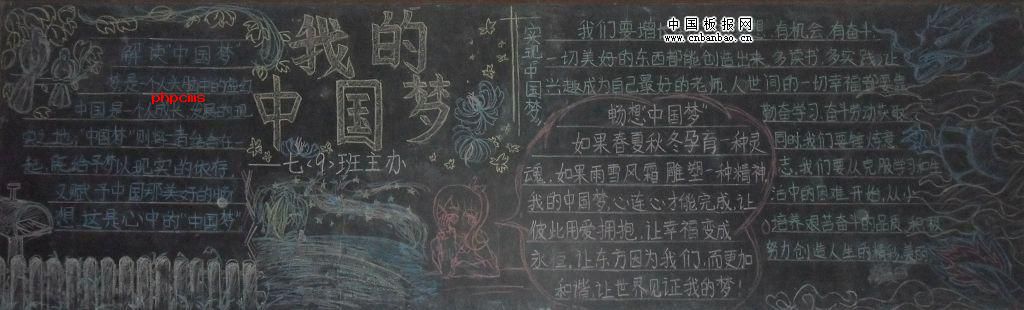 解读"中国梦"
梦是一个人
phpcms
中国是一个
地,"中国梦"则
起,既给予所以现实的依存,
又赋予中国那美好的梦
想,这是心中的"中国梦"
我的
中国梦
七.9.班主办
实现中国梦
我们要增 有机会,有奋斗,
一切美好的东西都能创造出来,多读书,多实践,让
兴趣成为自己最好的老师,人世间的一切幸福都需要
勤奋学习,奋斗
同时我们要锤炼意
志,我们要从克服学习和生
活中的困难开始,从小
培养艰苦奋斗的品质,积极
努力创造人生的精彩
畅想"中国梦"
如果春夏秋冬孕育一种灵
魂,如果雨雪风霜雕塑一种精神
我的中国梦,心连心才能完成,让
彼此用爱拥抱,让幸福变成
永恒,让东方因为我们,而更加
和谐,让世界见证我的梦!
中国板报网
www.cnbanbao.cn